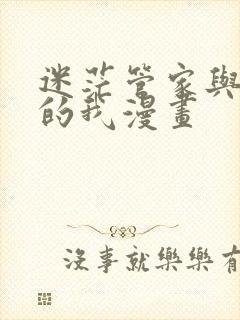 迷茫管家與
的我漫畫
沒事就樂樂有